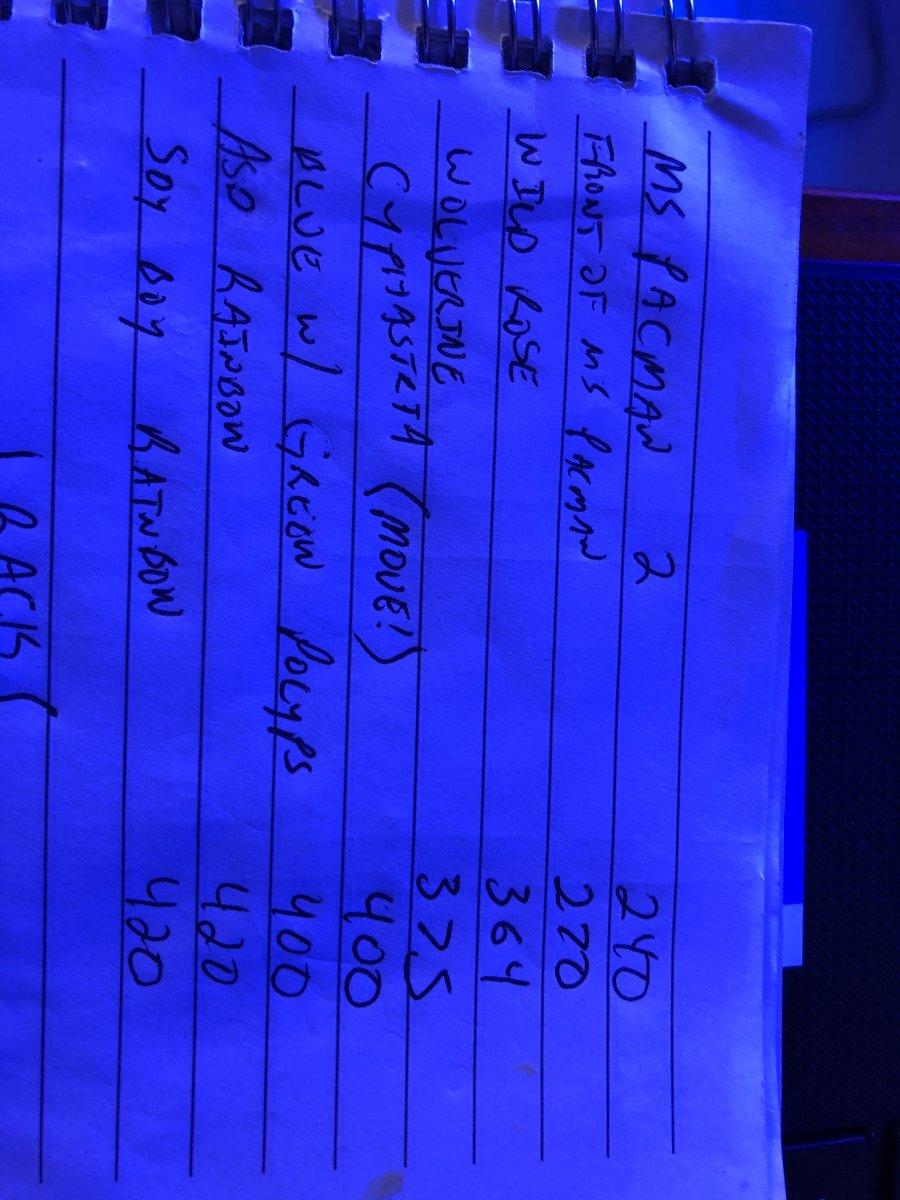 MS PACMAN 2 240
FRONT OF MS PACMAN 220
WILD ROSE 364
WOLVERINE 375
CYPHASTRIA (MOVE!) 400
BLUE W/ GREEN POLYPS 400
ASD RAINBOW 420
SOY BOY RAINBOW 420